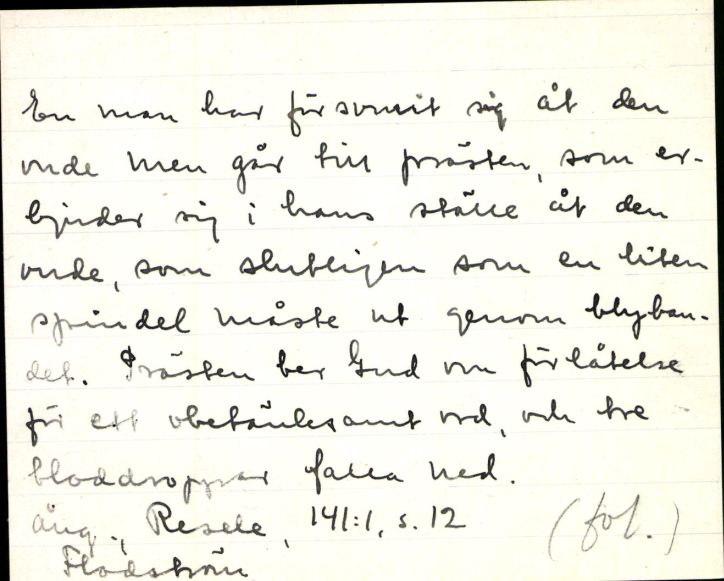 En man har försvurit sig åt den
onde men går till prästen, som er-
bjuder sig i hans ställe åt den
onde, som slutligen som en liten
spindel måste ut genom blyban-
det. Prästen ber Gud om förlåtelse
för ett obetänksamt ord, och tre
bloddroppar falla ned.
Ång., Resele, 141:1, s. 12 (fol.)
Flodström